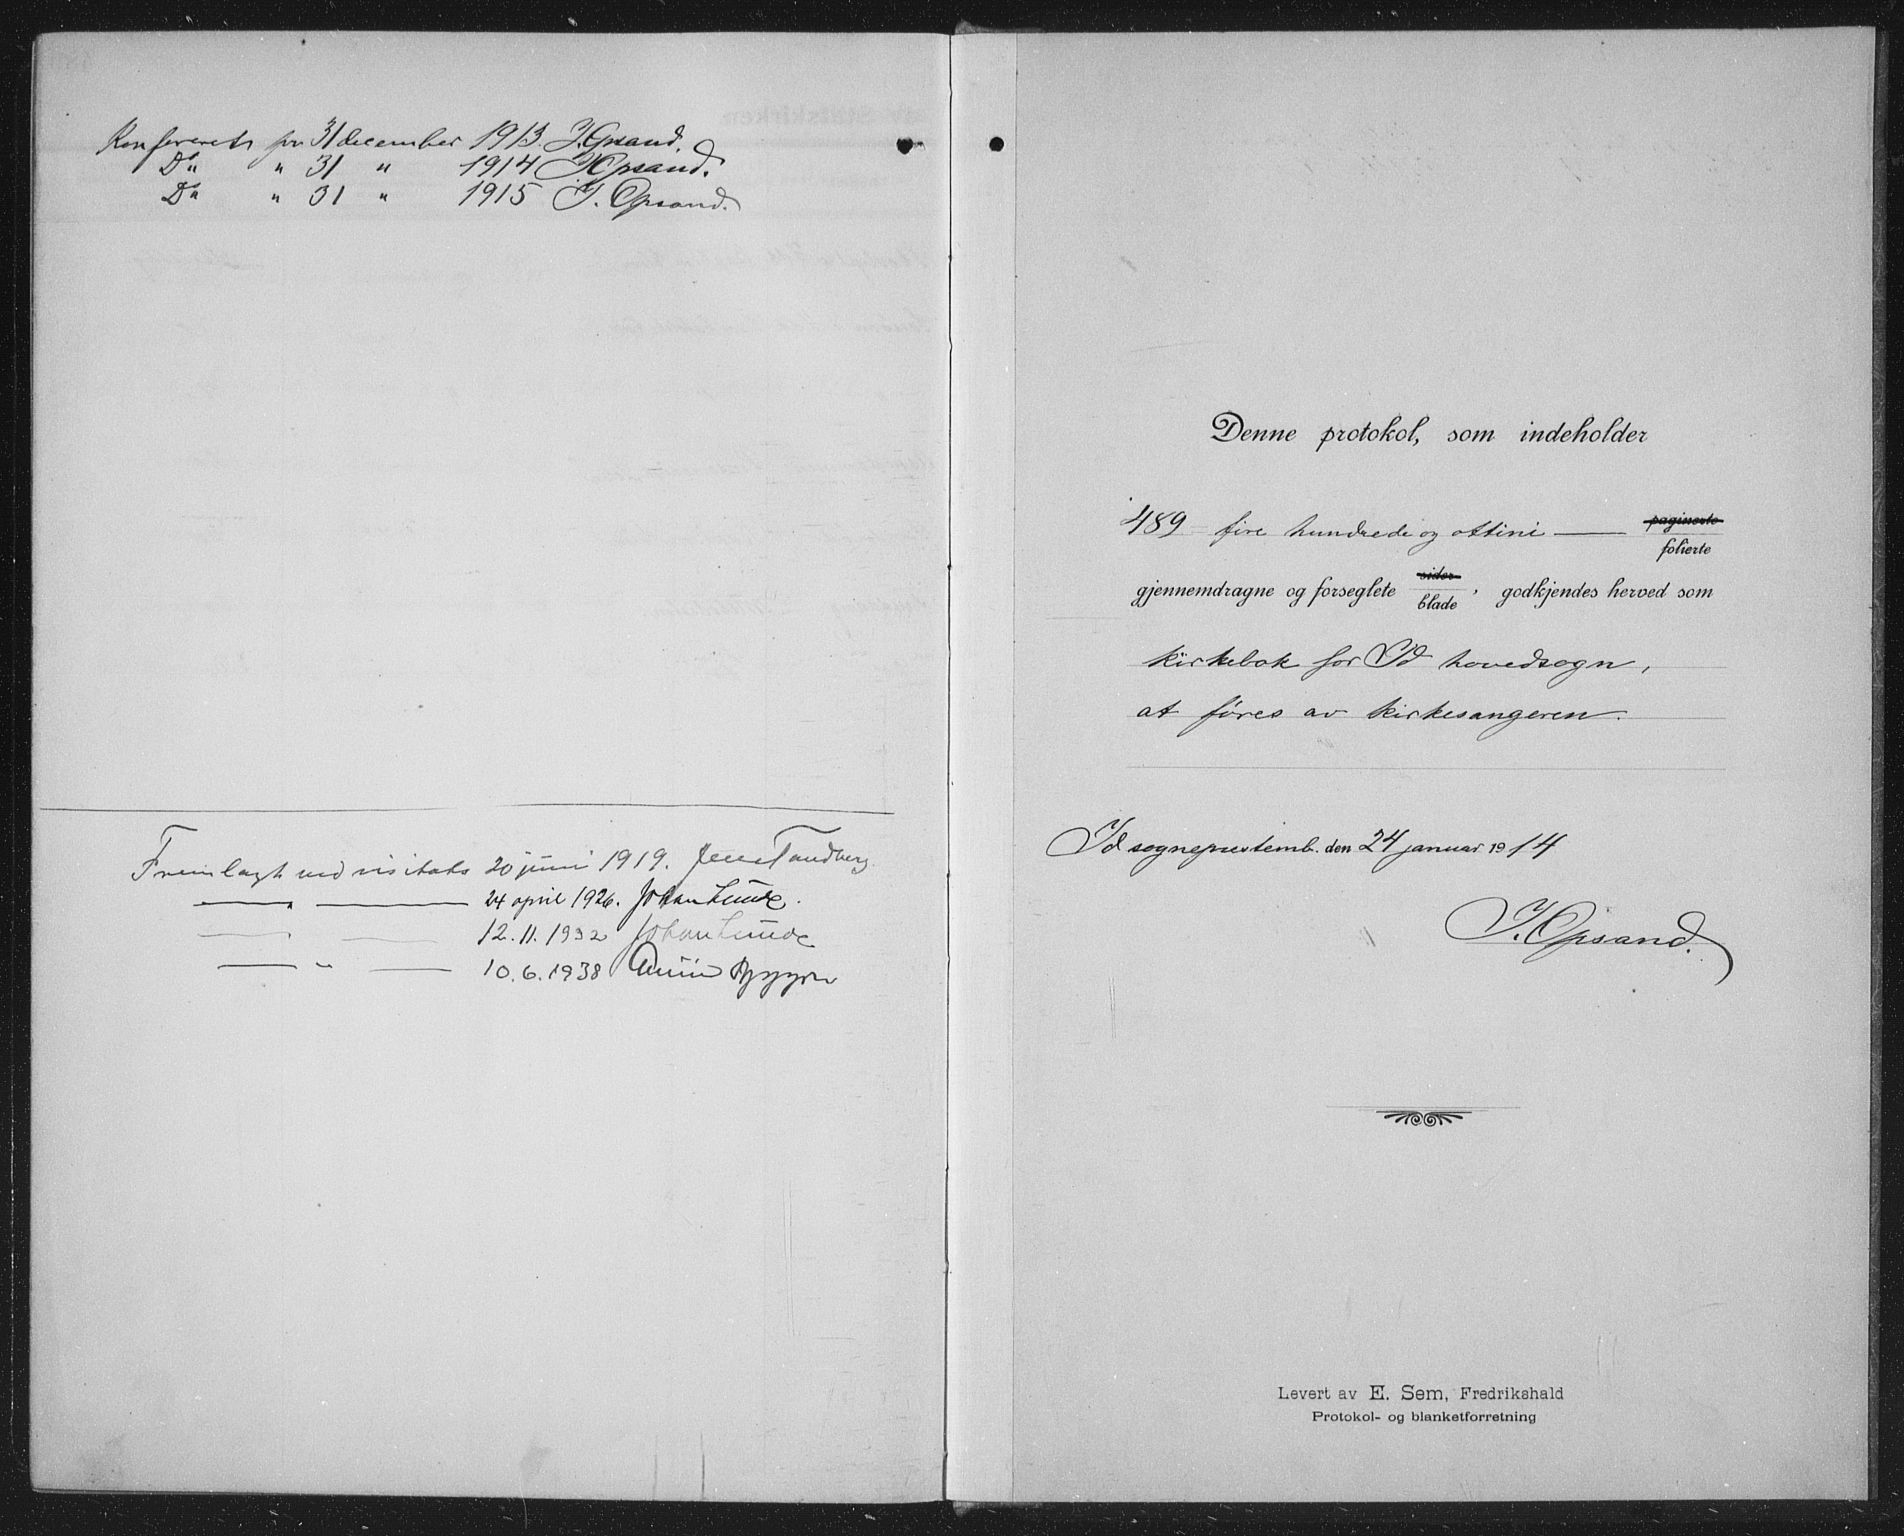 Konfereret pr 31 december 1913. I. Opsand.
Do " 31 " 1914 I Opsand.
Do " 31 " 1915 I. Opsand.
Fremlagt ved visitats 20 juni 1919. Jens Tandberg.
" 24 april 1926. Johan Lunde.
12.11.1932 Johan Lunde
" 10.6.1938
Denne protokol, som indeholder
489 fire hundrede og ottini paginerte
folierte
gjennemdragne og forseglete sider
blade, godkjendes herved som
kirkebok for Id hovedsogn,
at føres av kirkesangeren.
Id sogneprestemb. den 24 januar 1914
I. Opsand.
Levert av E. Sem, Fredrikshald
Protokol- og blanketforretning